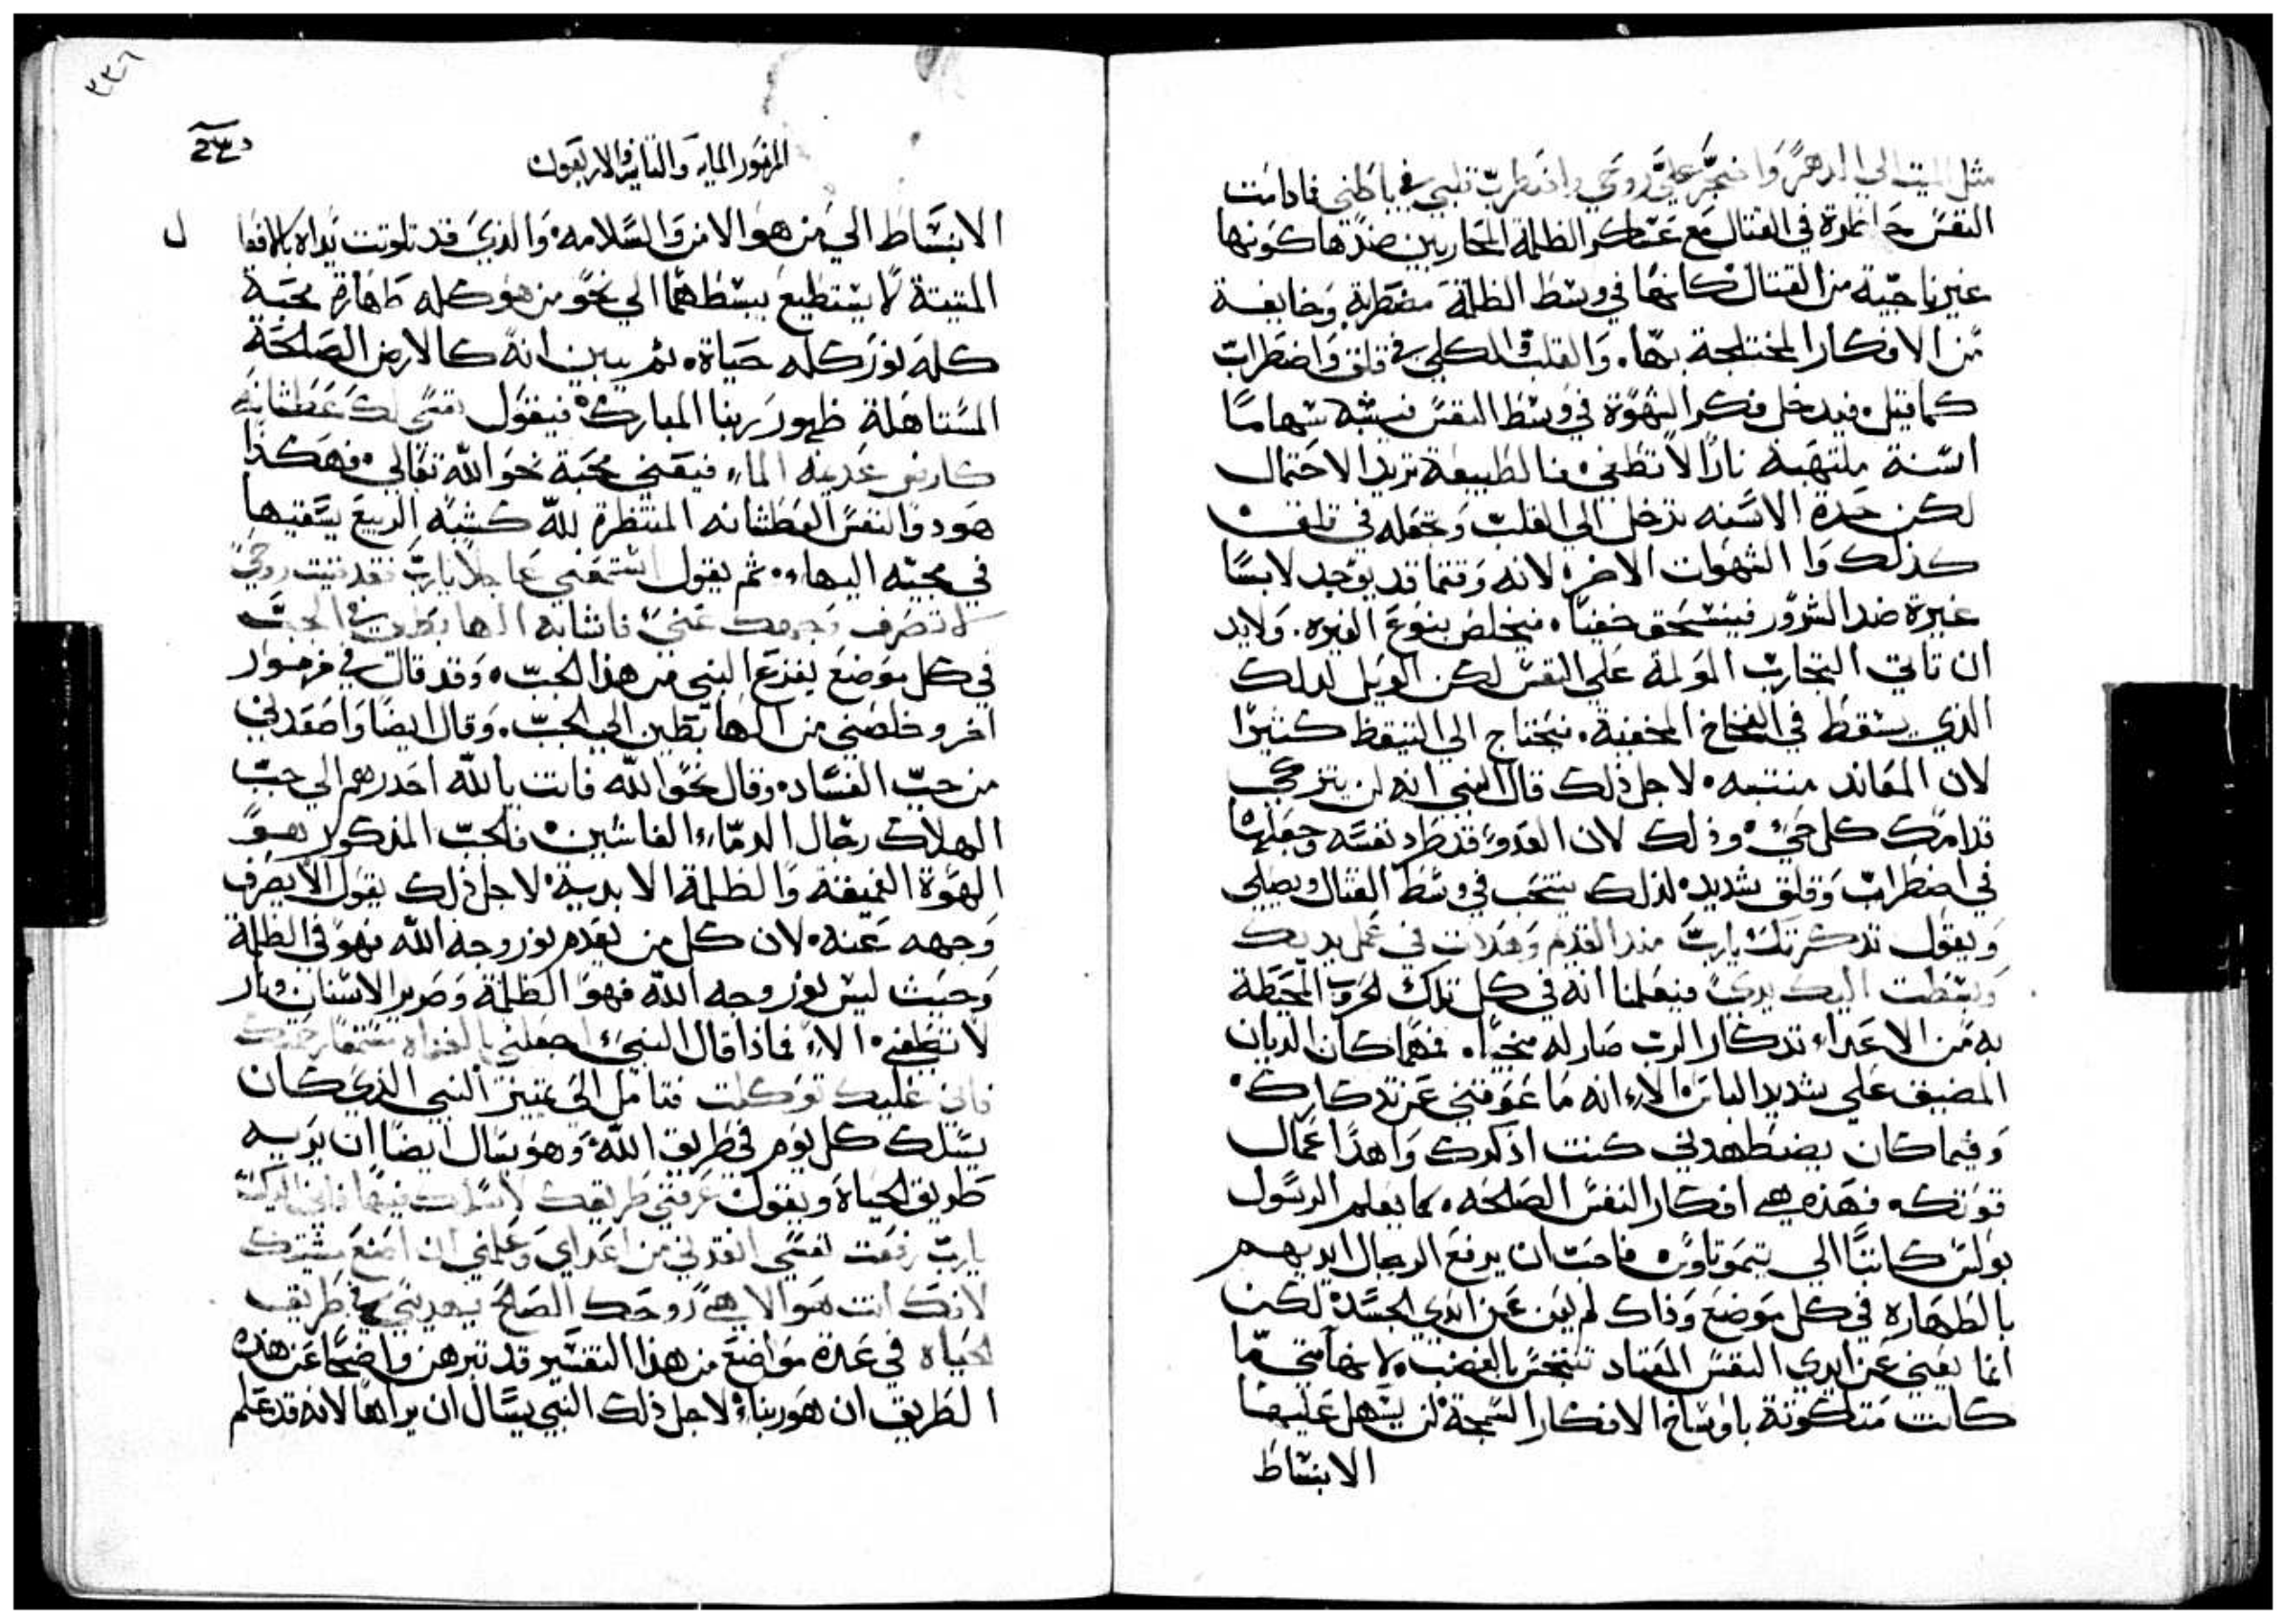 مثل الميت الي الدهر وانضجر علي روحي واضطرب قلبي في باطني فادامت
النفس حاطرة في القتال مع عساكر الظلمة المحاربين ضدها كونها
غير ناجية من القتال كانها في وسط الظلمة مضطربة وخايفة
من الافكار المختلجة بها. والقلب الكلي في قلق واضطراب
كما قيل فيدخل فكر الشهوة في وسط النفس فيشبه سهاما
اسنة ملتهبة نارا لا تطفي فالطبيعة تريد الاحتمال
لكن حدة الاسنه تدخل الي القلب وتجعله في تلف
كذلك وا الشهوات الاخر لانه وقتما قد يوجد لابسا
غيرة ضد الشرور فينسحق خفيا فيخلص بنوع الغيره. ولابد
ان تاتي التجارب المولمة علي النفس لكن الويل لدلك
الذي يسقط في الفخاخ المخفية فيحتاج الي التيقظ كثيرا
لان المعاند منتبه لاجل ذلك قال النبي انه لن يتزكي
قدامك كل حي وذلك لان العدو قد طرد نفسه وجعلها
في اضطراب وقلق شديد لذلك ينتحب في وسط القتال ويصلي
ويقول تذكرتك يارب منذ القدم وهذذت في عمل يديك
وبسطت اليك يدي فيعلمنا انه في كل تلك الحروب المحيطة
به من الاعداء تدكار الرب صار له منجيا. فمهما كان الديان
المضيق علي شديد الباس الا انه ما عوقني عن تدكارك
وفيما كان يضطهدني كنت ادكرك واهذا عمال
قوتكه فهذه هي افكار النفس الصلحه كما يعلم الرسول
بولس كاتبا الي تيموتاوس فاحب ان يرفع الرجال ايديهم
بالطهاره في كل موضع وذاك لم يبن عن ايدي الجسد لكن
انما يعني عن ايدي النفس المعتاد تتنجس بالغضب لانها متي ما
كانت متلكوتة باوساخ الافكار السمجة لن يسهل عليها
الابنساط
٣٣٦
المزمور المايه والثانيه والاربعون
الابنساط الي من هو الامن والسلامه والذي قد تلوتت يداه بالافعال
المتيتة لا يستطيع يبسطهما الي نحو من هو كله طهارة محبة
كله نور كله حياة ثم يبين انه كالارض الصلحة
المستاهلة ظهور ربنا المبارك فيقول نفسي لك عطشانه
كارض عديمه الماء فيقني محبة نحو الله تعالي فهكذا
هو دو النفس العطشانه المنتظرة لله كشبه الربيع يسقيها
في محبته البهاء ثم يقول استمعني عاجلا يارب فقد فنيت روحي
لا تصرف وجهك عني فاتشابه الهابطين في الجب
في كل موضع يفزع النبي من هذا الجب وقد قال في مزمور
اخر وخلصني من الهابطين الي الجب. وقال ايضا واصعدني
من جب الفساد وقال نحو الله فانت يا لله احدرهم الي جب
الهلاك رجال الدماء الغاشين فالجب المذكور هو
الهوة العميقة والظلمة الابدية لاجل ذلك يقول الا يصرف
وجهه عنه لان كل من يعدم نور وجه الله فهو في الظلمة
وحيث ليس نور وجه الله فهو الظلمة وصرير الاسنان ونار
لا تطفي الا فماذا قال النبي اجعلني بالغداه مستمعا رحمتك
فاني عليك توكلت فتامل الي تمييز النبي الذي كان
يسلك كل يوم في طريق الله وهو يسال ايضا ان يريه
طريق الحياة ويقول عرفني طريقك لاسلك فيها فاني اليك
يارب رفعت نفسي انقدني من اعداي وعلمني ان اصنع مشيتك
لانك انت هو الاهي روحك الصلح يهديني في طريق
الحياه في عدة مواضع من هذا التفسير قد تبرهن واضحا عن هذه
الطريق ان هو ربنا لاجل ذلك النبي يسال ان يراها لانه قد علم